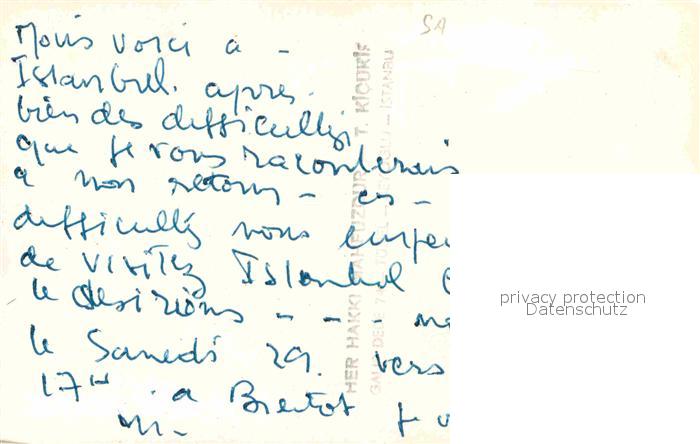 SA
Nous voici a -
Istanbul. apres.
bien des difficultés
que je vous raconterais
a mon retour - ces -
difficultés nous empe
de visitez Istanbul
le désirions - - -
le Samedi 29. vers
17H . a Bientot
HER HAKKI MAHFUZDUR T. KIÇURIS
İSTANBUL
privacy protection
Datenschutz